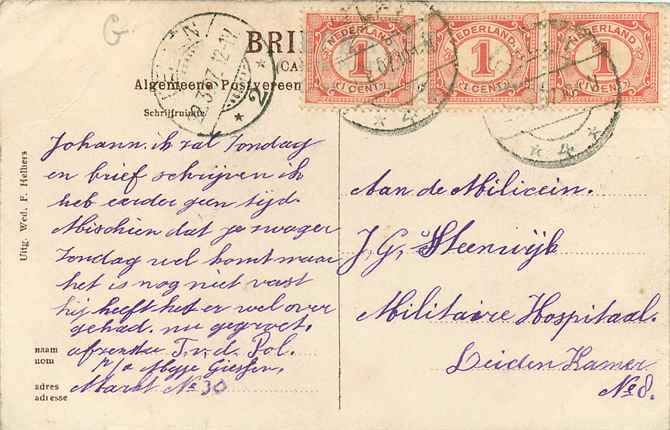 G
BRI
(CA
Algemeene Postvereen
Schrijfruimte
NEDERLAND
1
1 CENT
NEDERLAND
1
1 CENT
NEDERLAND
1
1 CENT
4
4
2
Johann. ik zal Zondag
en brief schrijven ik
heb eerder geen tijd
Mischien dat je zwager
Zondag wel komt maar
het is nog niet vast
hij heeft het er wel over
gehad. nu gegroet,
afzender T. v. d. Pol.
Markt No 30
naam
nom
adres
adresse
Uitg. Wed. F. Helliers
Aan de Milicien.
J, G, Steenwijk
Militaire Hospitaal.
Leiden Kamer
No 8.